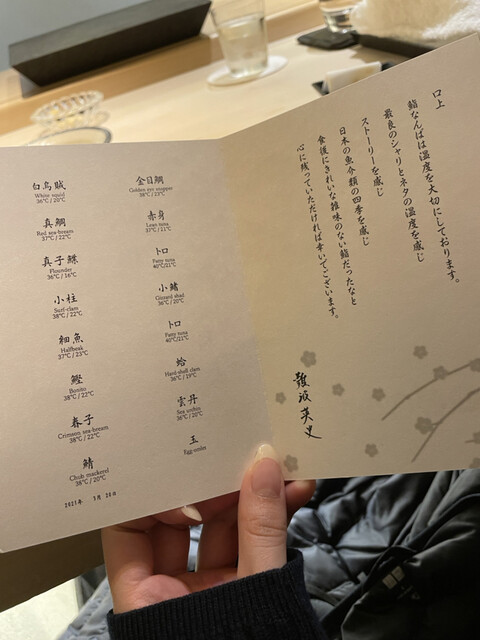 白烏賊
White squid
36℃ / 20℃
真鯛
Red sea-bream
37℃ / 22℃
真子鰈
Flounder
36℃ / 16℃
小柱
Surf-clam
38℃ / 22℃
細魚
Halfbeak
37℃ / 23℃
鰹
Bonito
38℃ / 22℃
春子
Crimson sea-bream
38℃ / 22℃
鯖
Chub mackerel
38℃ / 20℃
2021年 3月 20日
金目鯛
Golden eye snapper
38℃ / 23℃
赤身
Lean tuna
37℃ / 21℃
トロ
Fatty tuna
40℃/21℃
小鰭
Gizzard shad
36℃ / 20℃
トロ
Fatty tuna
40℃/21℃
蛤
Hard-shell clam
36℃ / 19℃
雲丹
Sea urchin
36℃ / 20℃
玉
口上
鮨なんばは温度を大切にしております。
最良のシャリとネタの温度を感じ
ストーリーを感じ
日本の魚介類の四季を感じ
食後にきれいな雑味のない鮨だったなと
心に残っていただければ幸いでございます。
難波英史